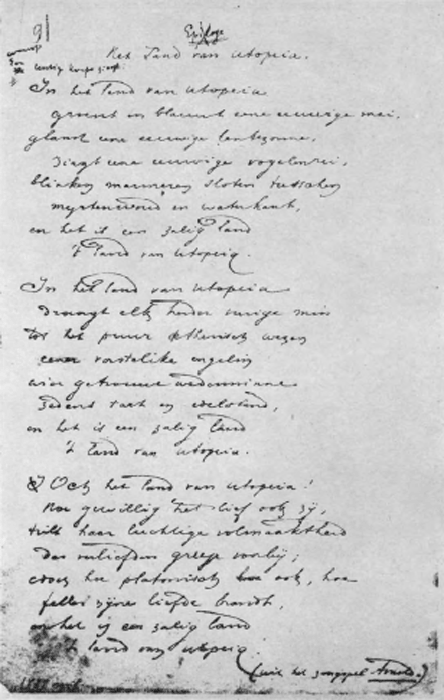 91
Het land van Utopeia.
In het land van Utopeia
groent en blauwt eene eeuwige mei,
glanst eene eeuwige lentezonne,
zingt eene eeuwige vogelenrei,
blinken marmeren sloten tusschen
myrtenwoud en waterkant,
en het is een zalig land
't land van Utopeia.
In het land van Utopeia
draagt elk herder eenige min
tot het puur etherisch wezen
eener vorstelike engelin
wier getrouwe wederminne
zedent tart en
en het is een zalig land
't land van Utopeia.
Och het land van Utopeia!
Hoe gewillig het lief ook zij,
trilt haar luchtige volmaaktheid
des verliefden greepe voorbij;
edoch hoe platonisch hoe ook, hoe
feller zijne liefde brandt,
en het is een zalig land
't land van Utopeia.
(uit het zangspel Arnold.)